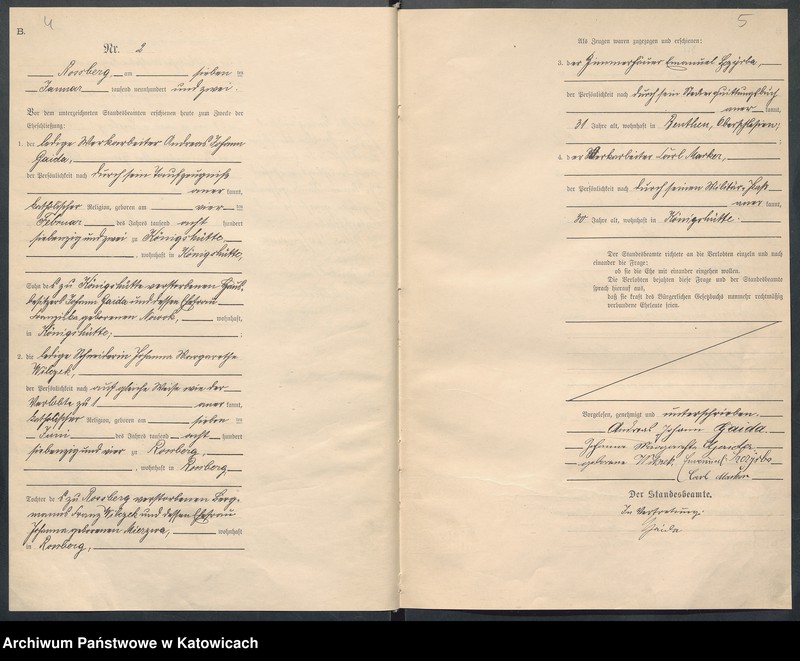 4
B.
Nr. 2
Rossberg, am sieben ten
Januar tausend neunhundert und zwei.
Vor dem unterzeichneten Standesbeamten erschienen heute zum Zwecke der
Eheschließung:
1. der ledige Werkarbeiter Andreas Johann
Gaida,
der Persönlichkeit nach durch sein Taufzeugniss
aner kannt,
katholischer Religion, geboren am vier ten
Februar des Jahres tausend acht hundert
siebenzig und zwei zu Königshütte
, wohnhaft in Königshütte,
Sohn des zu Königshütte verstorbenen Haus-
besitzers Johann Gaida und dessen Ehefrau
Franziska geborenen Nowok, wohnhaft,
in Königshütte;
2. die ledige Schneiderin Johanna Margarethe
Witzek,
der Persönlichkeit nach auf gleiche Weise wie der
Verlobte zu 1 aner kannt,
katholischer Religion, geboren am sieben ten
Juni des Jahres tausend acht hundert
siebenzig und vier zu Rossberg,
, wohnhaft in Rossberg
Tochter des zu Rossberg verstorbenen Berg-
manns Franz Witzek und dessen Ehefrau
Johanna geborenen Mierzwa, wohnhaft
in Rossberg,
5
Als Zeugen waren zugezogen und erschienen:
3. der Zimmerhäuer Emanuel
der Persönlichkeit nach durch sein
aner kannt,
31 Jahre alt, wohnhaft in Beuthen, Oberschlesien;
4. der Werkarbeiter Carl Marker,
der Persönlichkeit nach durch seinen Militär-Paß
aner kannt,
30 Jahre alt, wohnhaft in Königshütte.
Der Standesbeamte richtete an die Verlobten einzeln und nach
einander die Frage:
ob sie die Ehe mit einander eingehen wollen.
Die Verlobten bejahten diese Frage und der Standesbeamte
sprach hierauf aus,
daß sie kraft des Bürgerlichen Gesetzbuchs nunmehr rechtmäßig
verbundene Eheleute seien.
Vorgelesen, genehmigt und unterschrieben.
Andreas Johann Gaida.
Johanna Margarethe Gaida
geborene Witzek. Emanuel
Carl Marker
Der Standesbeamte.
In Vertretung:
Gaida
Archiwum Państwowe w Katowicach